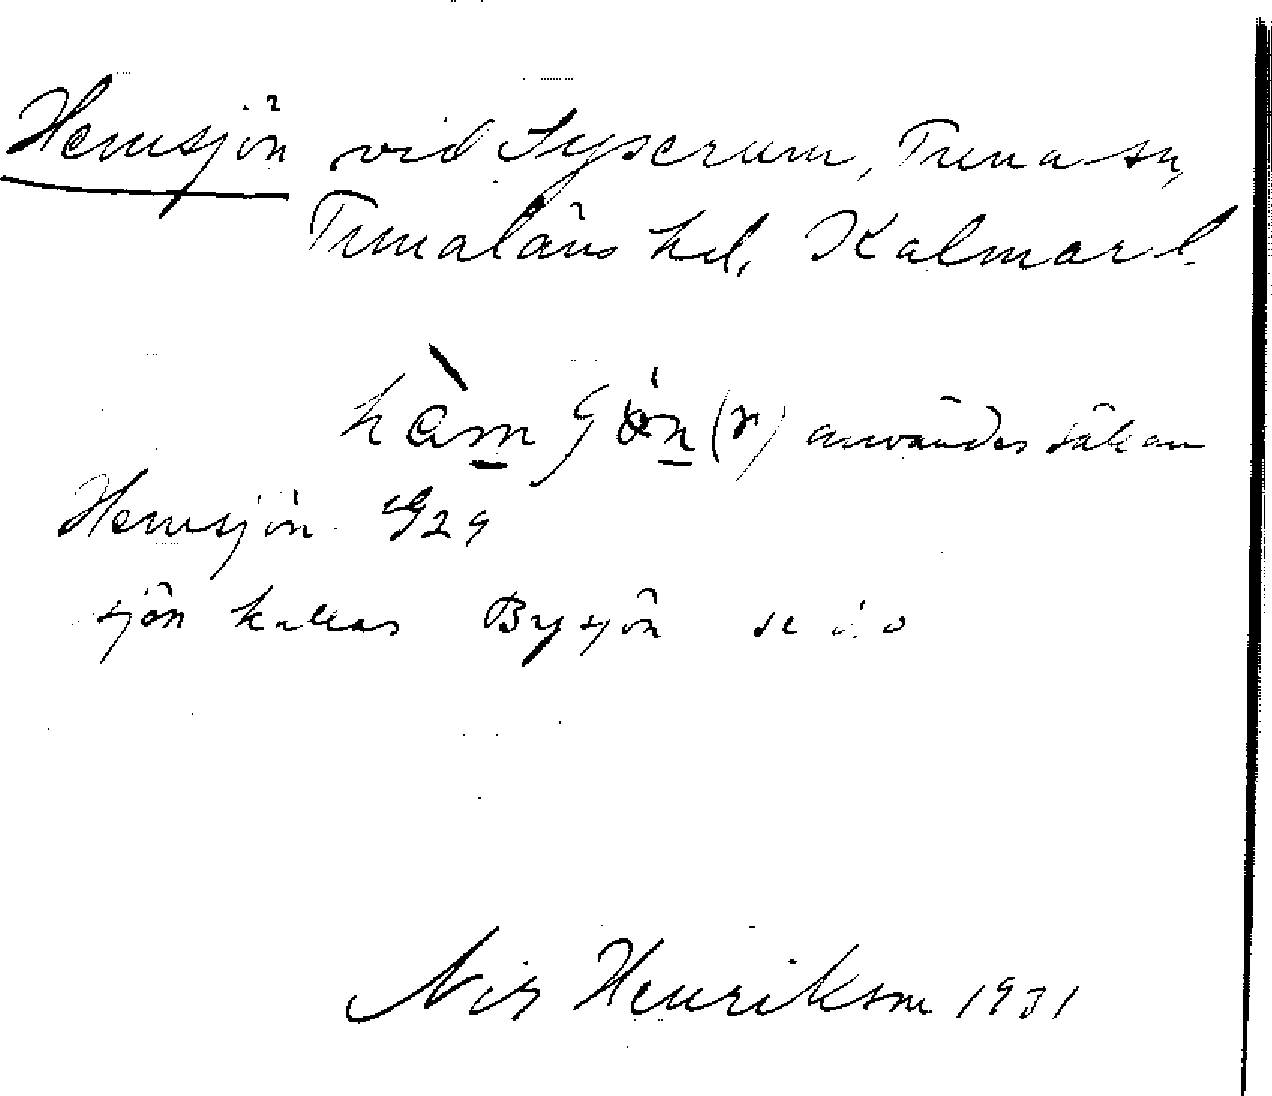 Hemsjön vid Syserum, Tuna sn,
Tunaläns hd, Kalmar l.
användes sällan
Hemsjön G29
sjön kallas Bysjön se d.o
Nils Henrikson 1931